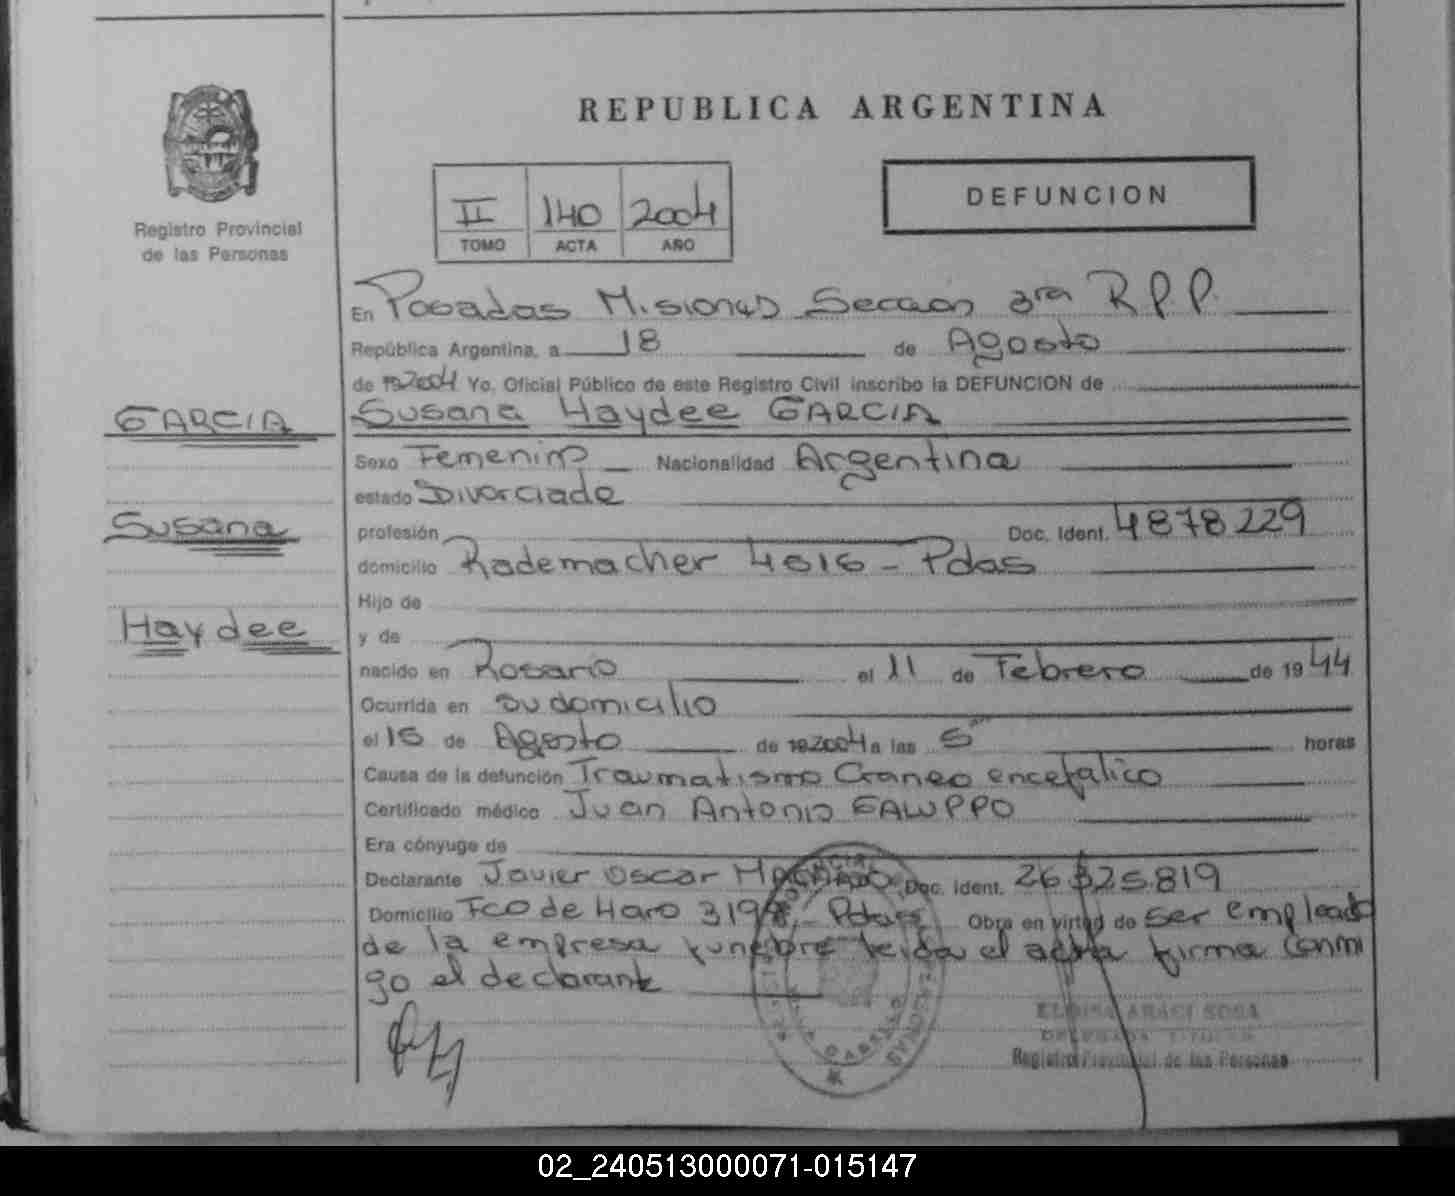 REPUBLICA ARGENTINA
Registro Provincial
de las Personas
II 140 2004
TOMO ACTA AÑO
DEFUNCION
En Posadas Misiones Seccion 3ra R.P.P.
República Argentina, a 18 de Agosto
de 192004 Yo, Oficial Público de este Registro Civil inscribo la DEFUNCION de
GARCIA
Susana Haydee GARCIA
Sexo Femenino Nacionalidad Argentina
estado Divorciada
Susana
profesión Doc. Ident. 4878229
domicilio Rademacher 4616 - Pdas
Hijo de
Haydee
y de
nacido en Rosario el 11 de Febrero de 1944
Ocurrida en su domicilio
el 15 de Agosto de 192004 a las 5 horas
Causa de la defunción Traumatismo Craneo encefalico
Certificado médico Juan Antonio GALUPPO
Era cónyuge de
Declarante Javier Oscar Doc. Ident. 26325819
Domicilio Fco de Haro 3198, - Pdas Obra en virtud de ser empleado
de la empresa funebre leida el acta firma conmi
go el declarante
ELOISA ARACI SOSA
DELEGADA TITULAR
Registro Provincial de las Personas
02_240513000071-015147